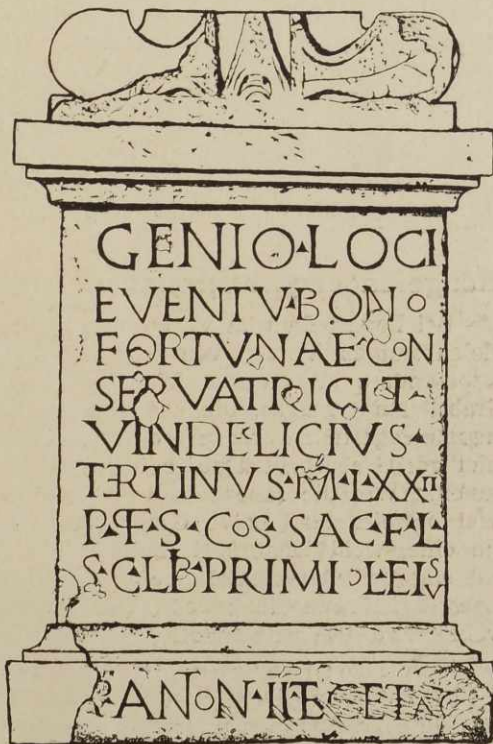 GENIO·LOCI
EVENTV·BONO
FORTVNAE·CON
SERVATRICI·T·
VINDELICIVS·
TERTINVS·M·L·XXII
P·F·S·COS·SAC·F·L·
S·CL·B·PRIMI·Ɔ·L·EI
ANON·II·E